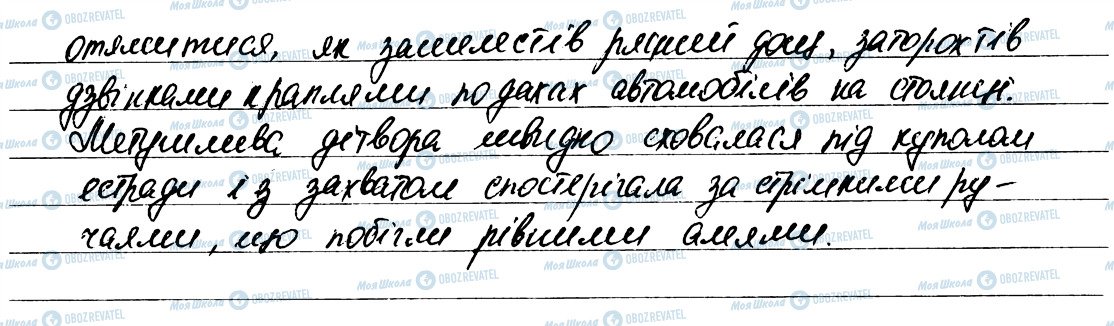 отямитися, як зашелестів рясний дощ, заторохтів
дзвінкими краплями по дахах автомобілів на стоянці.
Метушлива дітвора швидко сховалася під куполом
естради і з захватом спостерігала за стрімкими ру-
чаями, що побігли рівними алеями.